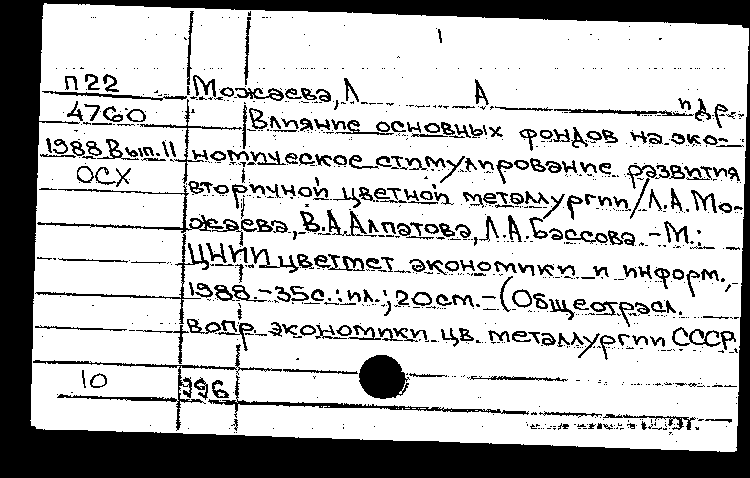 1
П22 Можаева, Л А и др.
4760 Влияние основных фондов на эко-
1988 Вып.11 номическое стимулирование развития
ОСХ вторичной цветной металлургии/Л.А.Мо-
жаева, В.А.Алпатова, Л.А.Бассова.-М.:
ЦНИИцветмет экономики и информ.,
1988.-35с.:ил.;20см.-(Общеотрасл.
вопр. экономики цв. металлургии СССР.
10 996